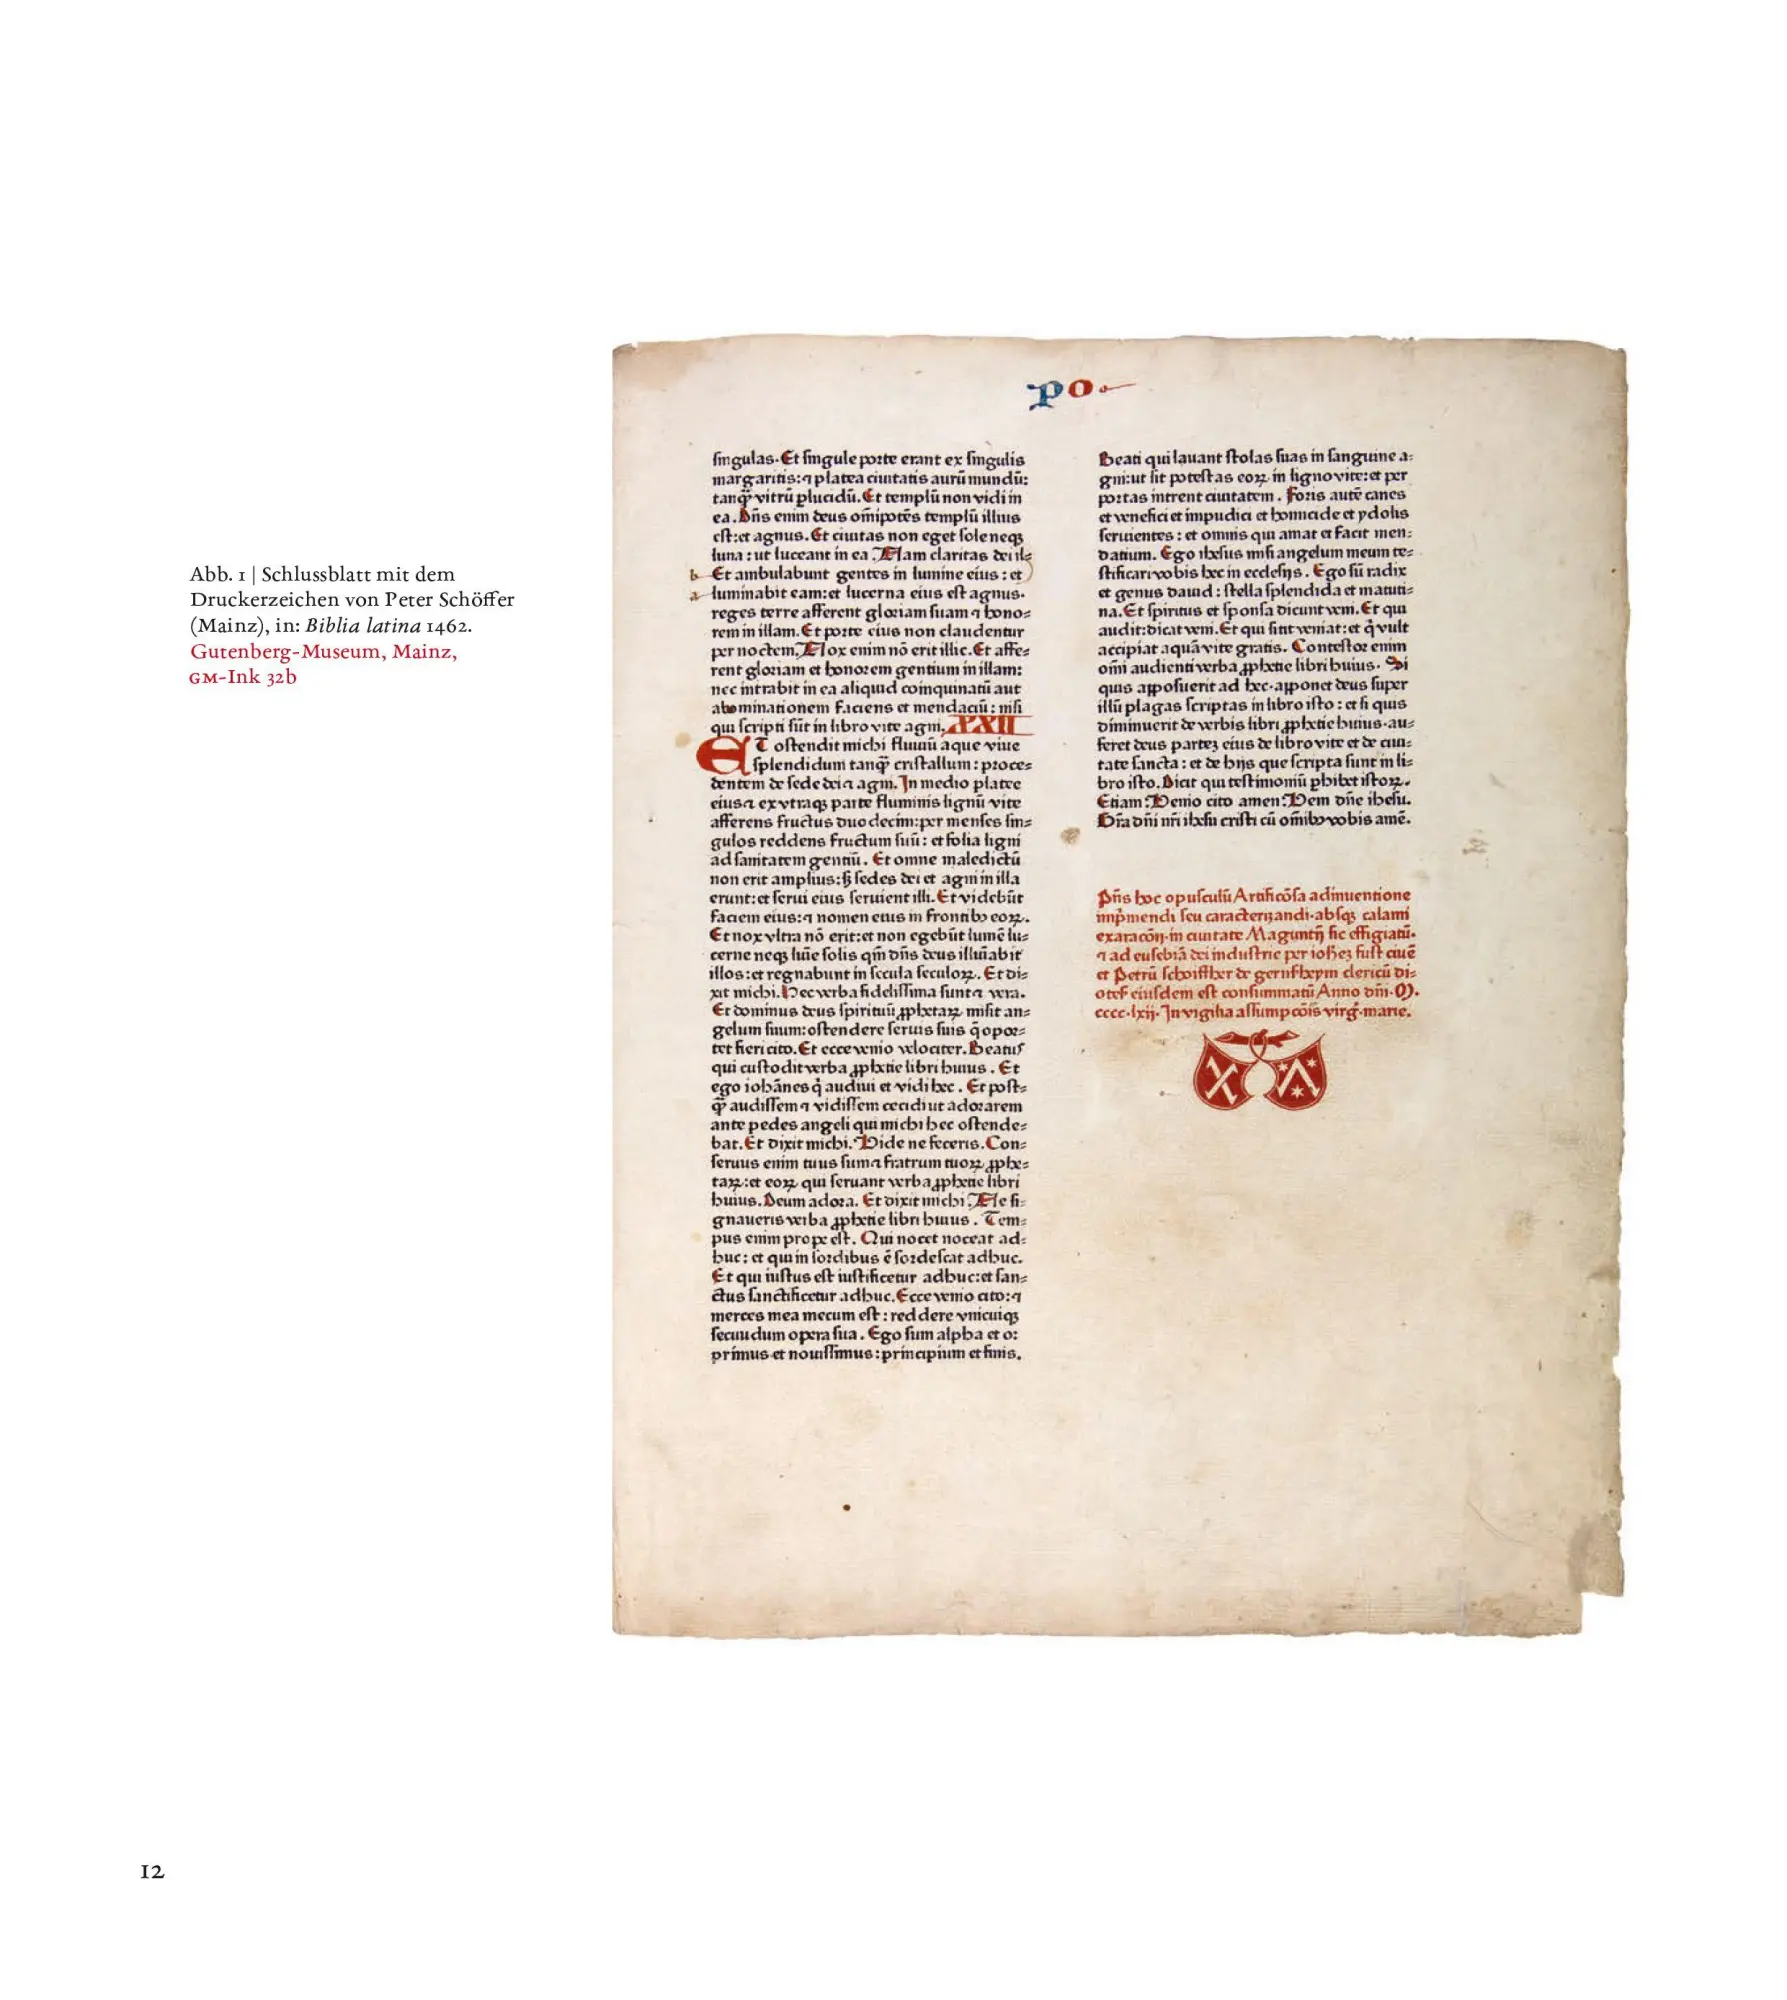 Abb. 1 | Schlussblatt mit dem
Druckerzeichen von Peter Schöffer
(Mainz), in: Biblia latina 1462.
Gutenberg-Museum, Mainz,
GM-Ink 32b
po
singulas. Et singule porte erant ex singulis
margaritis: ⁊ platea ciuitatis aurū mundū:
tanq̄ vitrū plucidū. Et templū non vidi in
ea. Dn̄s enim deus om̄ipotēs templū illius
est: et agnus. Et ciuitas non eget sole neqꝫ
luna: ut luceant in ea. Nam claritas dei il⸗
b Et ambulabunt gentes in lumine eius: et
a luminabit eam: et lucerna eius est agnus.
reges terre afferent gloriam suam ⁊ hono⸗
rem in illam. Et porte eius non claudentur
per noctem. Nox enim nō erit illic. Et affe⸗
rent gloriam et honorem gentium in illam:
nec intrabit in ea aliquid coinquinatū aut
abominationem faciens et mendaciū: nisi
qui scripti sūt in libro vite agni. XXII
ET ostendit michi fluuiū aque viue
splendidum tanq̄ cristallum: proce⸗
dentem de sede dei ⁊ agni. In medio platee
eius ⁊ ex vtraqꝫ parte fluminis lignū vite
afferens fructus duodecim: per menses sin⸗
gulos reddens fructum suū: et folia ligni
ad sanitatem gentiū. Et omne maledictū
non erit amplius: sꝫ sedes dei et agni in illa
erunt: et serui eius seruient illi. Et videbūt
faciem eius: ⁊ nomen eius in frontibꝫ eoꝝ.
Et nox vltra nō erit: et non egebūt lumē lu⸗
cerne neqꝫ lūie solis qm̄ dn̄s deus illūiabit
illos: et regnabunt in secula seculoꝝ. Et di⸗
xit michi. Hec verba fidelissima sunt ⁊ vera.
Et dominus deus spirituū ꝓphetaꝝ misit an⸗
gelum suum: ostendere seruis suis q̄ opor⸗
tet fieri cito. Et ecce venio velociter. Beatus
qui custodit verba ꝓphetie libri huius. Et
ego iohānes q̄ audiui et vidi hec. Et post⸗
q̄ audissem ⁊ vidissem cecidi ut adorarem
ante pedes angeli qui michi hec ostende⸗
bat. Et dixit michi. Vide ne feceris. Con⸗
seruus enim tuus sum ⁊ fratrum tuoꝝ ꝓphe⸗
taꝝ: et eoꝝ qui seruant verba ꝓphetie libri
huius. Deum adora. Et dixit michi. Ne si⸗
gnaueris verba ꝓphetie libri huius. Tem⸗
pus enim prope est. Qui nocet noceat ad⸗
huc: et qui in sordibus ē sordescat adhuc.
Et qui iustus est iustificetur adhuc: et san⸗
ctus sanctificetur adhuc. Ecce venio cito: ⁊
merces mea mecum est: reddere vnicuiqꝫ
secundum opera sua. Ego sum alpha et o:
primus et nouissimus: principium et finis.
Beati qui lauant stolas suas in sanguine a⸗
gni: ut sit potestas eoꝝ in ligno vite: et per
portas intrent ciuitatem. Foris autē canes
et venefici et impudici et homicide et ydolis
seruientes: et omnis qui amat et facit men⸗
datium. Ego ihesus misi angelum meum te⸗
stificari vobis hec in ecclesijs. Ego sū radix
et genus dauid: stella splendida et matuti⸗
na. Et spiritus et sponsa dicunt veni. Et qui
audit: dicat veni. Et qui sitit veniat: et q̄ vult
accipiat aquā vite gratis. Contestor enim
om̄i audienti verba ꝓphetie libri huius. Si
quis apposuerit ad hec. apponet deus super
illū plagas scriptas in libro isto: et si quis
diminuerit de verbis libri ꝓphetie huius. au⸗
feret deus parteꝫ eius de libro vite et de ciui⸗
tate sancta: et de hijs que scripta sunt in li⸗
bro isto. Dicit qui testimoniū phibet istoꝝ.
Etiam. Venio cito amen. Veni dn̄e ihesu.
Gr̄a dn̄i nr̄i ihesu cristi cū om̄ibꝫ vobis amē.
Pn̄s hoc opusculū Artificōsa adinuentione
imp̄mendi seu caracterizandi. absqꝫ calami
exaracōn. in ciuitate Maguntn̄ sic effigiatū.
⁊ ad eusebiā dei industrie per ioheꝫ fust ciuē
et Petrū schoiffher de gernsheym clericū di⸗
otes̄ eiusdem est consummatū Anno dn̄i. M.
cccc. lxij. In vigilia assumpcōis virḡ. marie.
12